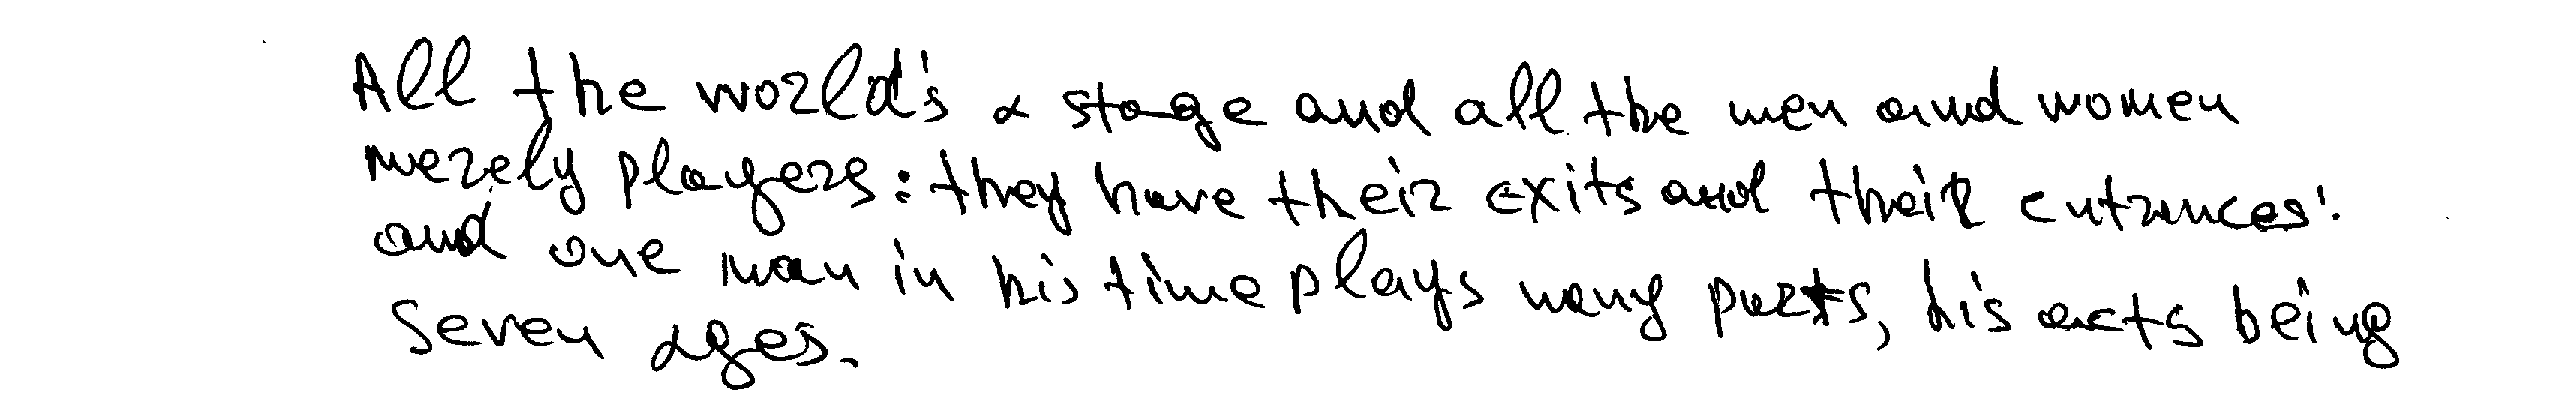 All the world's a stage and all the men and women
merely players: they have their exits and their entrances:
and one man in his time plays many parts, his acts being
seven ages.